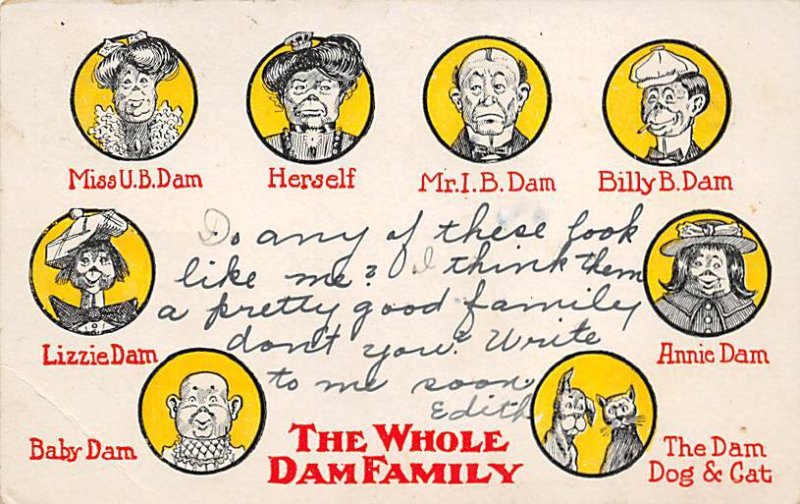 Miss U.B. Dam
Herself
Mr. I. B. Dam
Billy B. Dam
Do any of these look
like me? I think them
a pretty good family
don't you? Write
to me soon.
Edith
Lizzie Dam
Annie Dam
Baby Dam
THE WHOLE
DAM FAMILY
The Dam
Dog & Cat